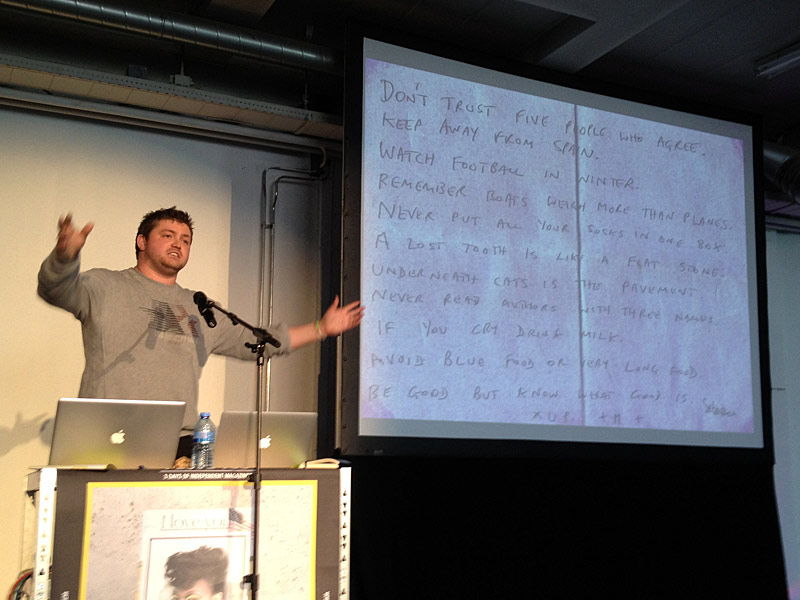 DON'T TRUST FIVE PEOPLE WHO AGREE.
KEEP AWAY FROM SPAIN.
WATCH FOOTBALL IN WINTER.
REMEMBER BOATS WEIGH MORE THAN PLANES.
NEVER PUT ALL YOUR SOCKS IN ONE BOX
A LOST TOOTH IS LIKE A FLAT STONE.
UNDERNEATH CATS IS THE PAVEMENT
NEVER READ AUTHORS WITH THREE NAMES
IF YOU CRY DRINK MILK.
AVOID BLUE FOOD OR VERY LONG FOOD
BE GOOD BUT KNOW WHAT GOOD IS
3 DAYS OF INDEPENDENT MAGAZINE
I love you